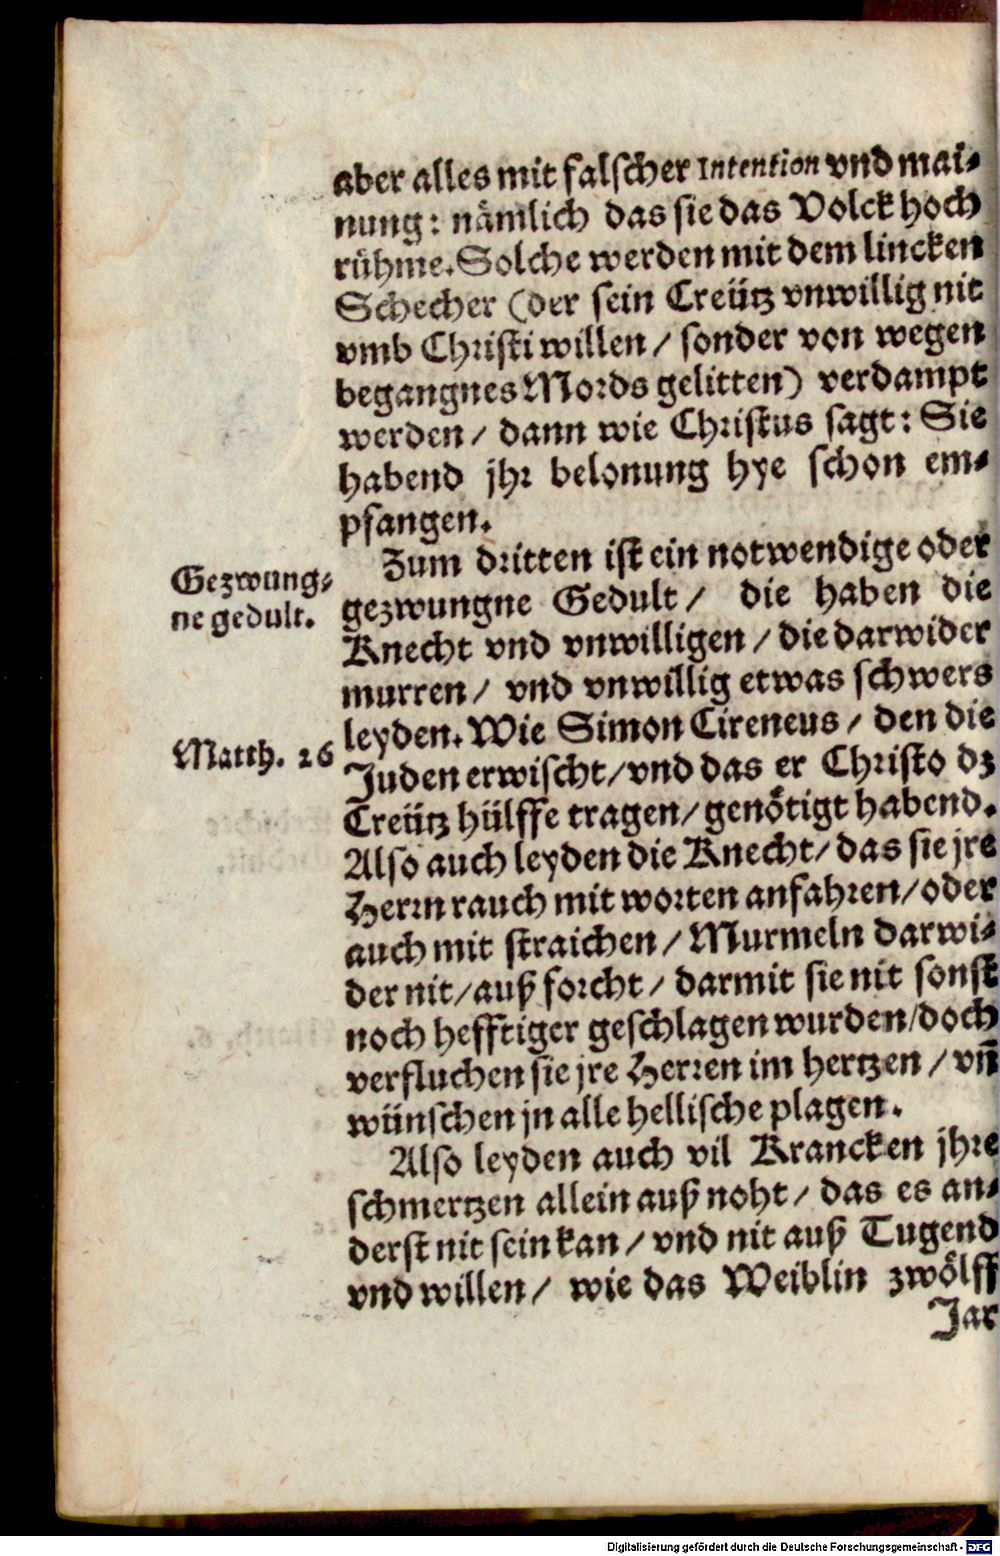 aber alles mit falscher Intention vnd mai-
nung: nämlich das sie das Volck hoch
rühme. Solche werden mit dem lincken
Schecher (der sein Creütz vnwillig nit
vmb Christi willen / sonder von wegen
begangnes Mords gelitten) verdampt
werden / dann wie Christus sagt: Sie
habend jhr belonung hye schon em-
pfangen.
Zum dritten ist ein notwendige oder
Gezwung-
ne gedult.
gezwungne Gedult / die haben die
Knecht vnd vnwilligen / die darwider
murren / vnd vnwillig etwas schwers
leyden. Wie Simon Cireneus / den die
Matth. 26
Juden erwischt / vnd das er Christo dz
Creütz hülffe tragen / genötigt habend.
Also auch leyden die Knecht / das sie jre
Herrn rauch mit worten anfahren / oder
auch mit straichen / Murmeln darwi-
der nit / auß forcht / darmit sie nit sonst
noch hefftiger geschlagen wurden / doch
verfluchen sie jre Herren im hertzen / vñ
wünschen jn alle hellische plagen.
Also leyden auch vil Krancken jhre
schmertzen allein auß noht / das es an-
derst nit sein kan / vnd nit auß Tugend
vnd willen / wie das Weiblin zwölff
Jar
Digitalisierung gefördert durch die Deutsche Forschungsgemeinschaft - DFG